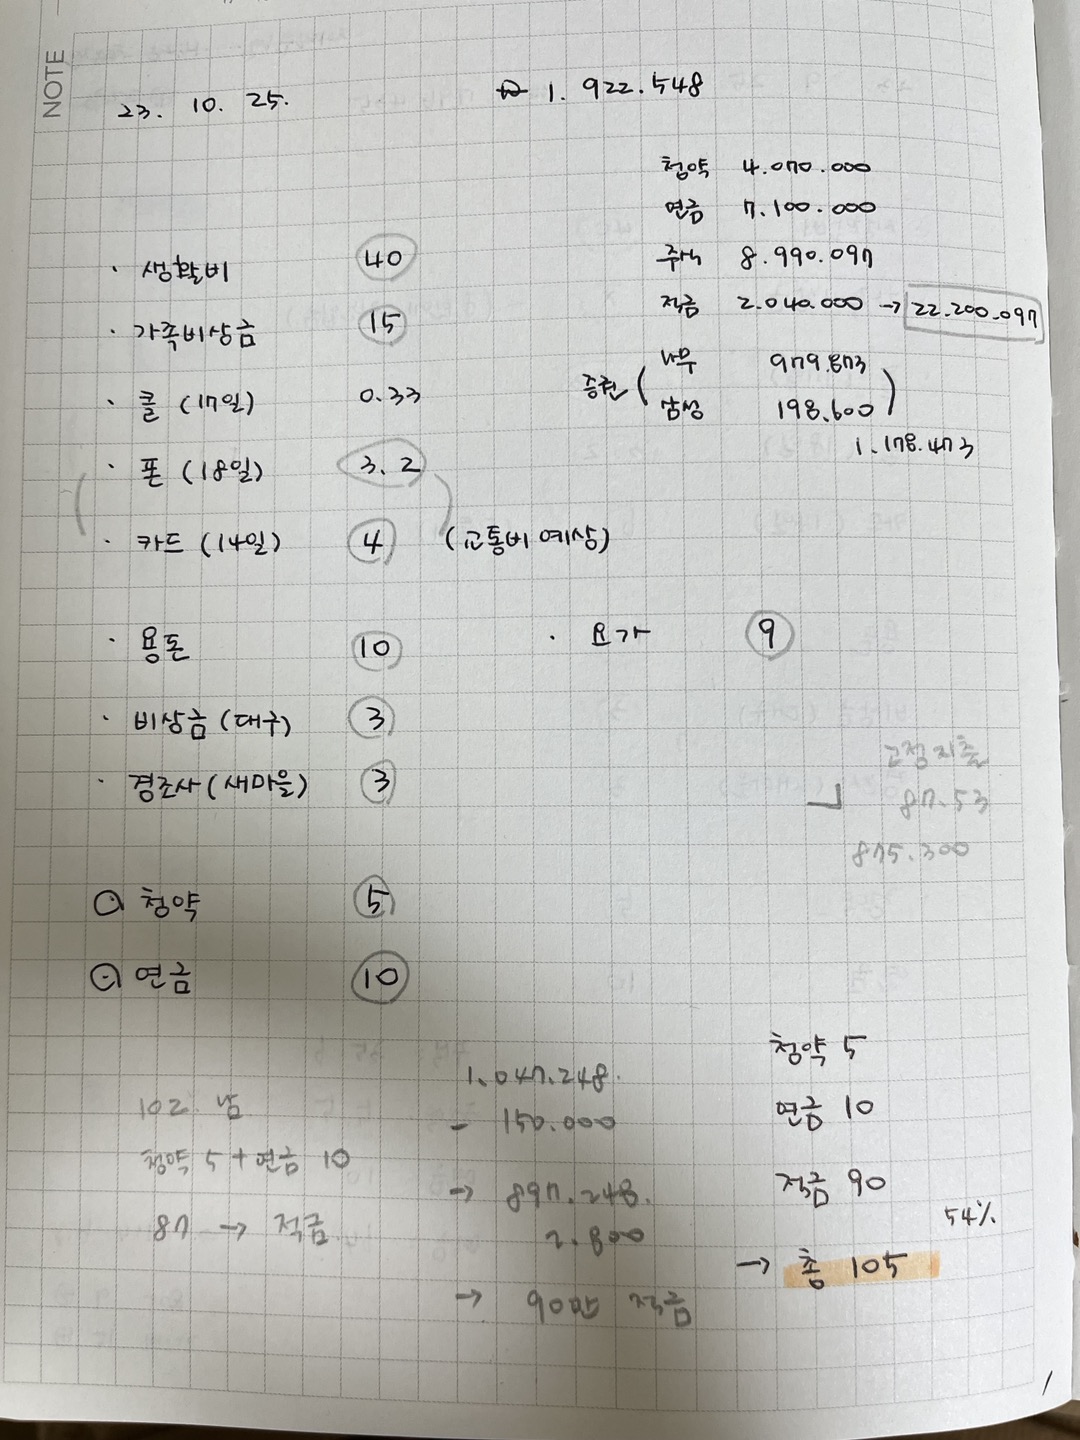 NOTE
23. 10. 25.
1. 922. 548
청약 4.070.000
연금 7.100.000
주식 8.990.097
적금 2.040.000 → 22.200.097
증권 ( 나무 979.873
삼성 198.600 )
1.178.473
· 생활비 40
· 가족비상금 15
· 콜 (17일) 0.33
· 폰 (18일) 3.2
· 카드 (14일) 4 (교통비 예상)
· 용돈 10 · 요가 9
· 비상금 (대구) 3
· 경조사 (새마을) 3
고정지출
87.53
875.300
청약 5
연금 10
102 남
청약 5 + 연금 10
87 → 적금
1.047.248.
- 150.000
→ 897.248.
2.800
→ 90만 적금
청약 5
연금 10
적금 90
54%
→ 총 105